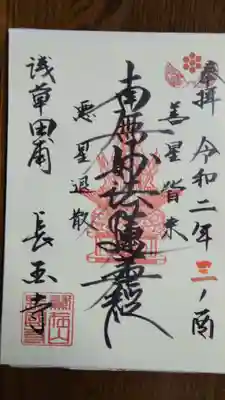 奉拝 令和二年三ノ酉
善星皆来
南無妙法蓮華経
悪星退散
浅草田甫
長国寺